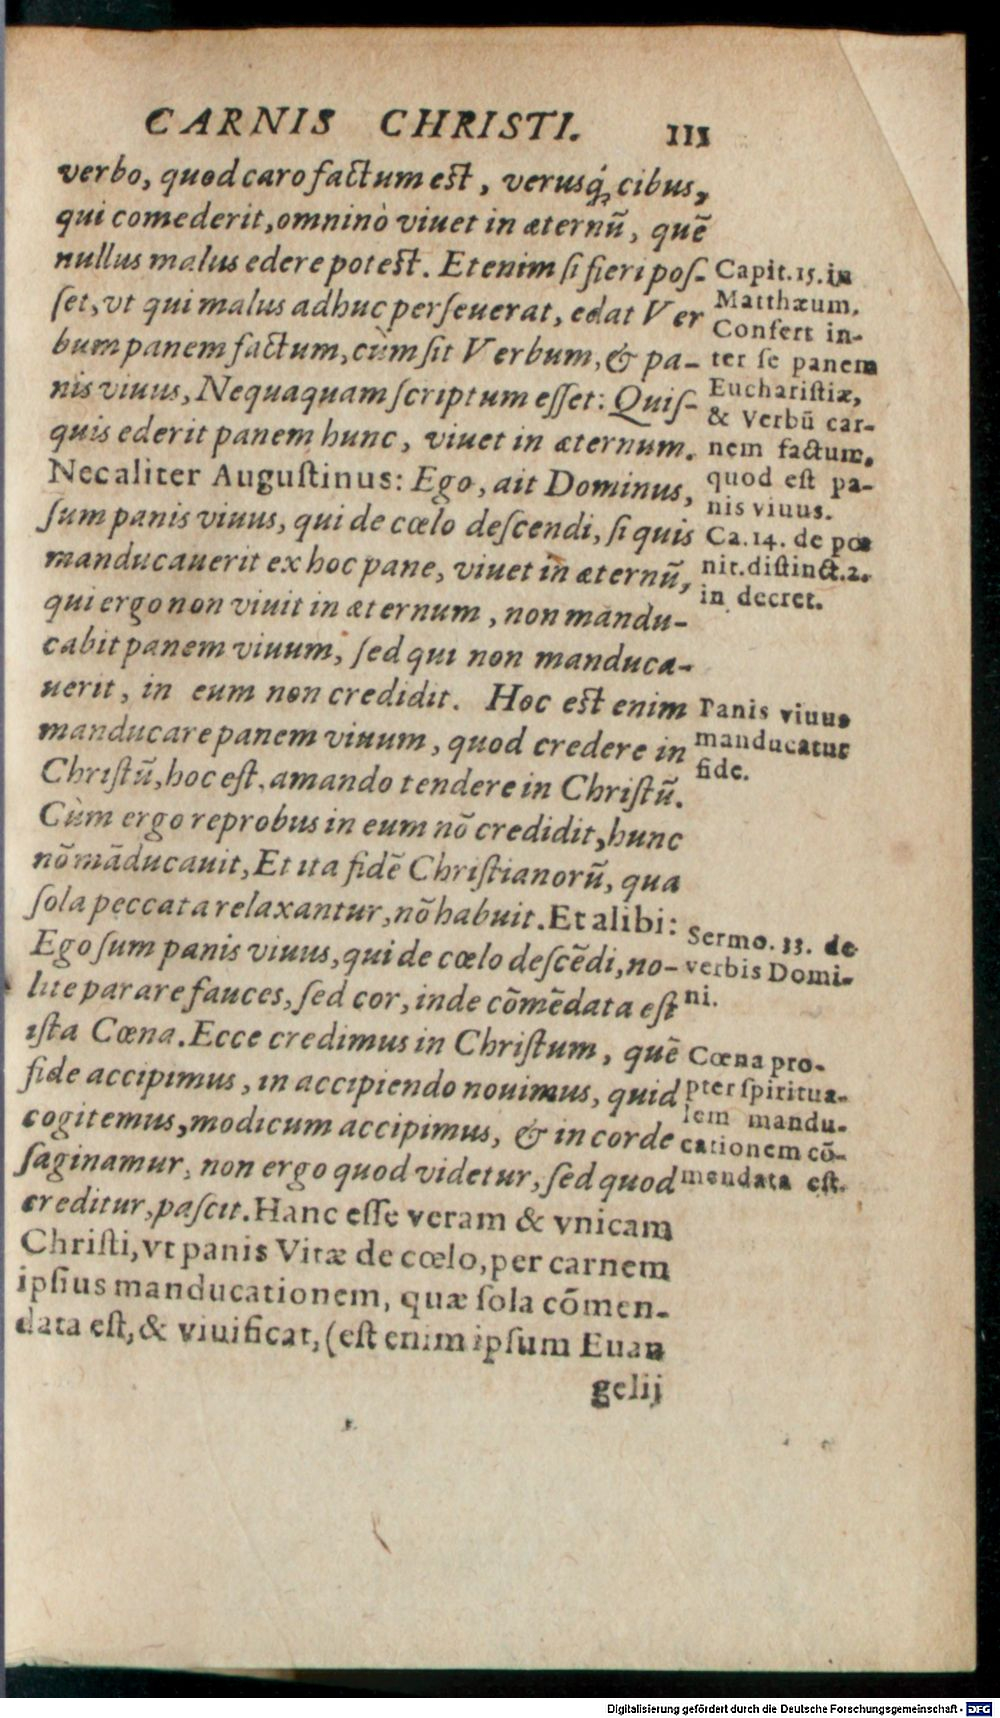 CARNIS CHRISTI. 111
verbo, quod caro factum est, verusq́; cibus,
qui comederit, omninò viuet in æternũ, quẽ
nullus malus edere potest. Etenim si fieri pos-
set, vt qui malus adhuc perseuerat, edat Ver
bum panem factum, cùm sit Verbum, & pa-
nis viuus, Nequaquam scriptum esset: Quis-
quis ederit panem hunc, viuet in æternum.
Nec aliter Augustinus: Ego, ait Dominus,
sum panis viuus, qui de cœlo descendi, si quis
manducauerit ex hoc pane, viuet in æternũ,
qui ergo non viuit in æternum, non mandu-
cabit panem viuum, sed qui non manduca-
uerit, in eum non credidit. Hoc est enim
manducare panem viuum, quod credere in
Christũ, hoc est, amando tendere in Christũ.
Cùm ergo reprobus in eum nõ credidit, hunc
nõ mãducauit, Et ita fidẽ Christianorũ, qua
sola peccata relaxantur, nõ habuit. Et alibi:
Ego sum panis viuus, qui de cœlo descẽdi, no-
lite parare fauces, sed cor, inde cõmẽdata est
ista Cœna. Ecce credimus in Christum, quẽ
fide accipimus, in accipiendo nouimus, quid
cogitemus, modicum accipimus, & in corde
saginamur, non ergo quod videtur, sed quod
creditur, pascit. Hanc esse veram & vnicam
Christi, vt panis Vitæ de cœlo, per carnem
ipsius manducationem, quæ sola cõmen-
data est, & viuificat, (est enim ipsum Euan
gelij
Capit. 15. in
Matthæum.
Confert in-
ter se panem
Eucharistiæ,
& Verbũ car-
nem factum,
quod est pa-
nis viuus.
Ca. 14. de pœ
nit. distinct. 2.
in decret.
Panis viuus
manducatur
fide.
Sermo. 33. de
verbis Domi-
ni.
Cœna pro-
pter spiritua-
lem mandu-
cationem cõ-
mendata est.
Digitalisierung gefördert durch die Deutsche Forschungsgemeinschaft - DFG